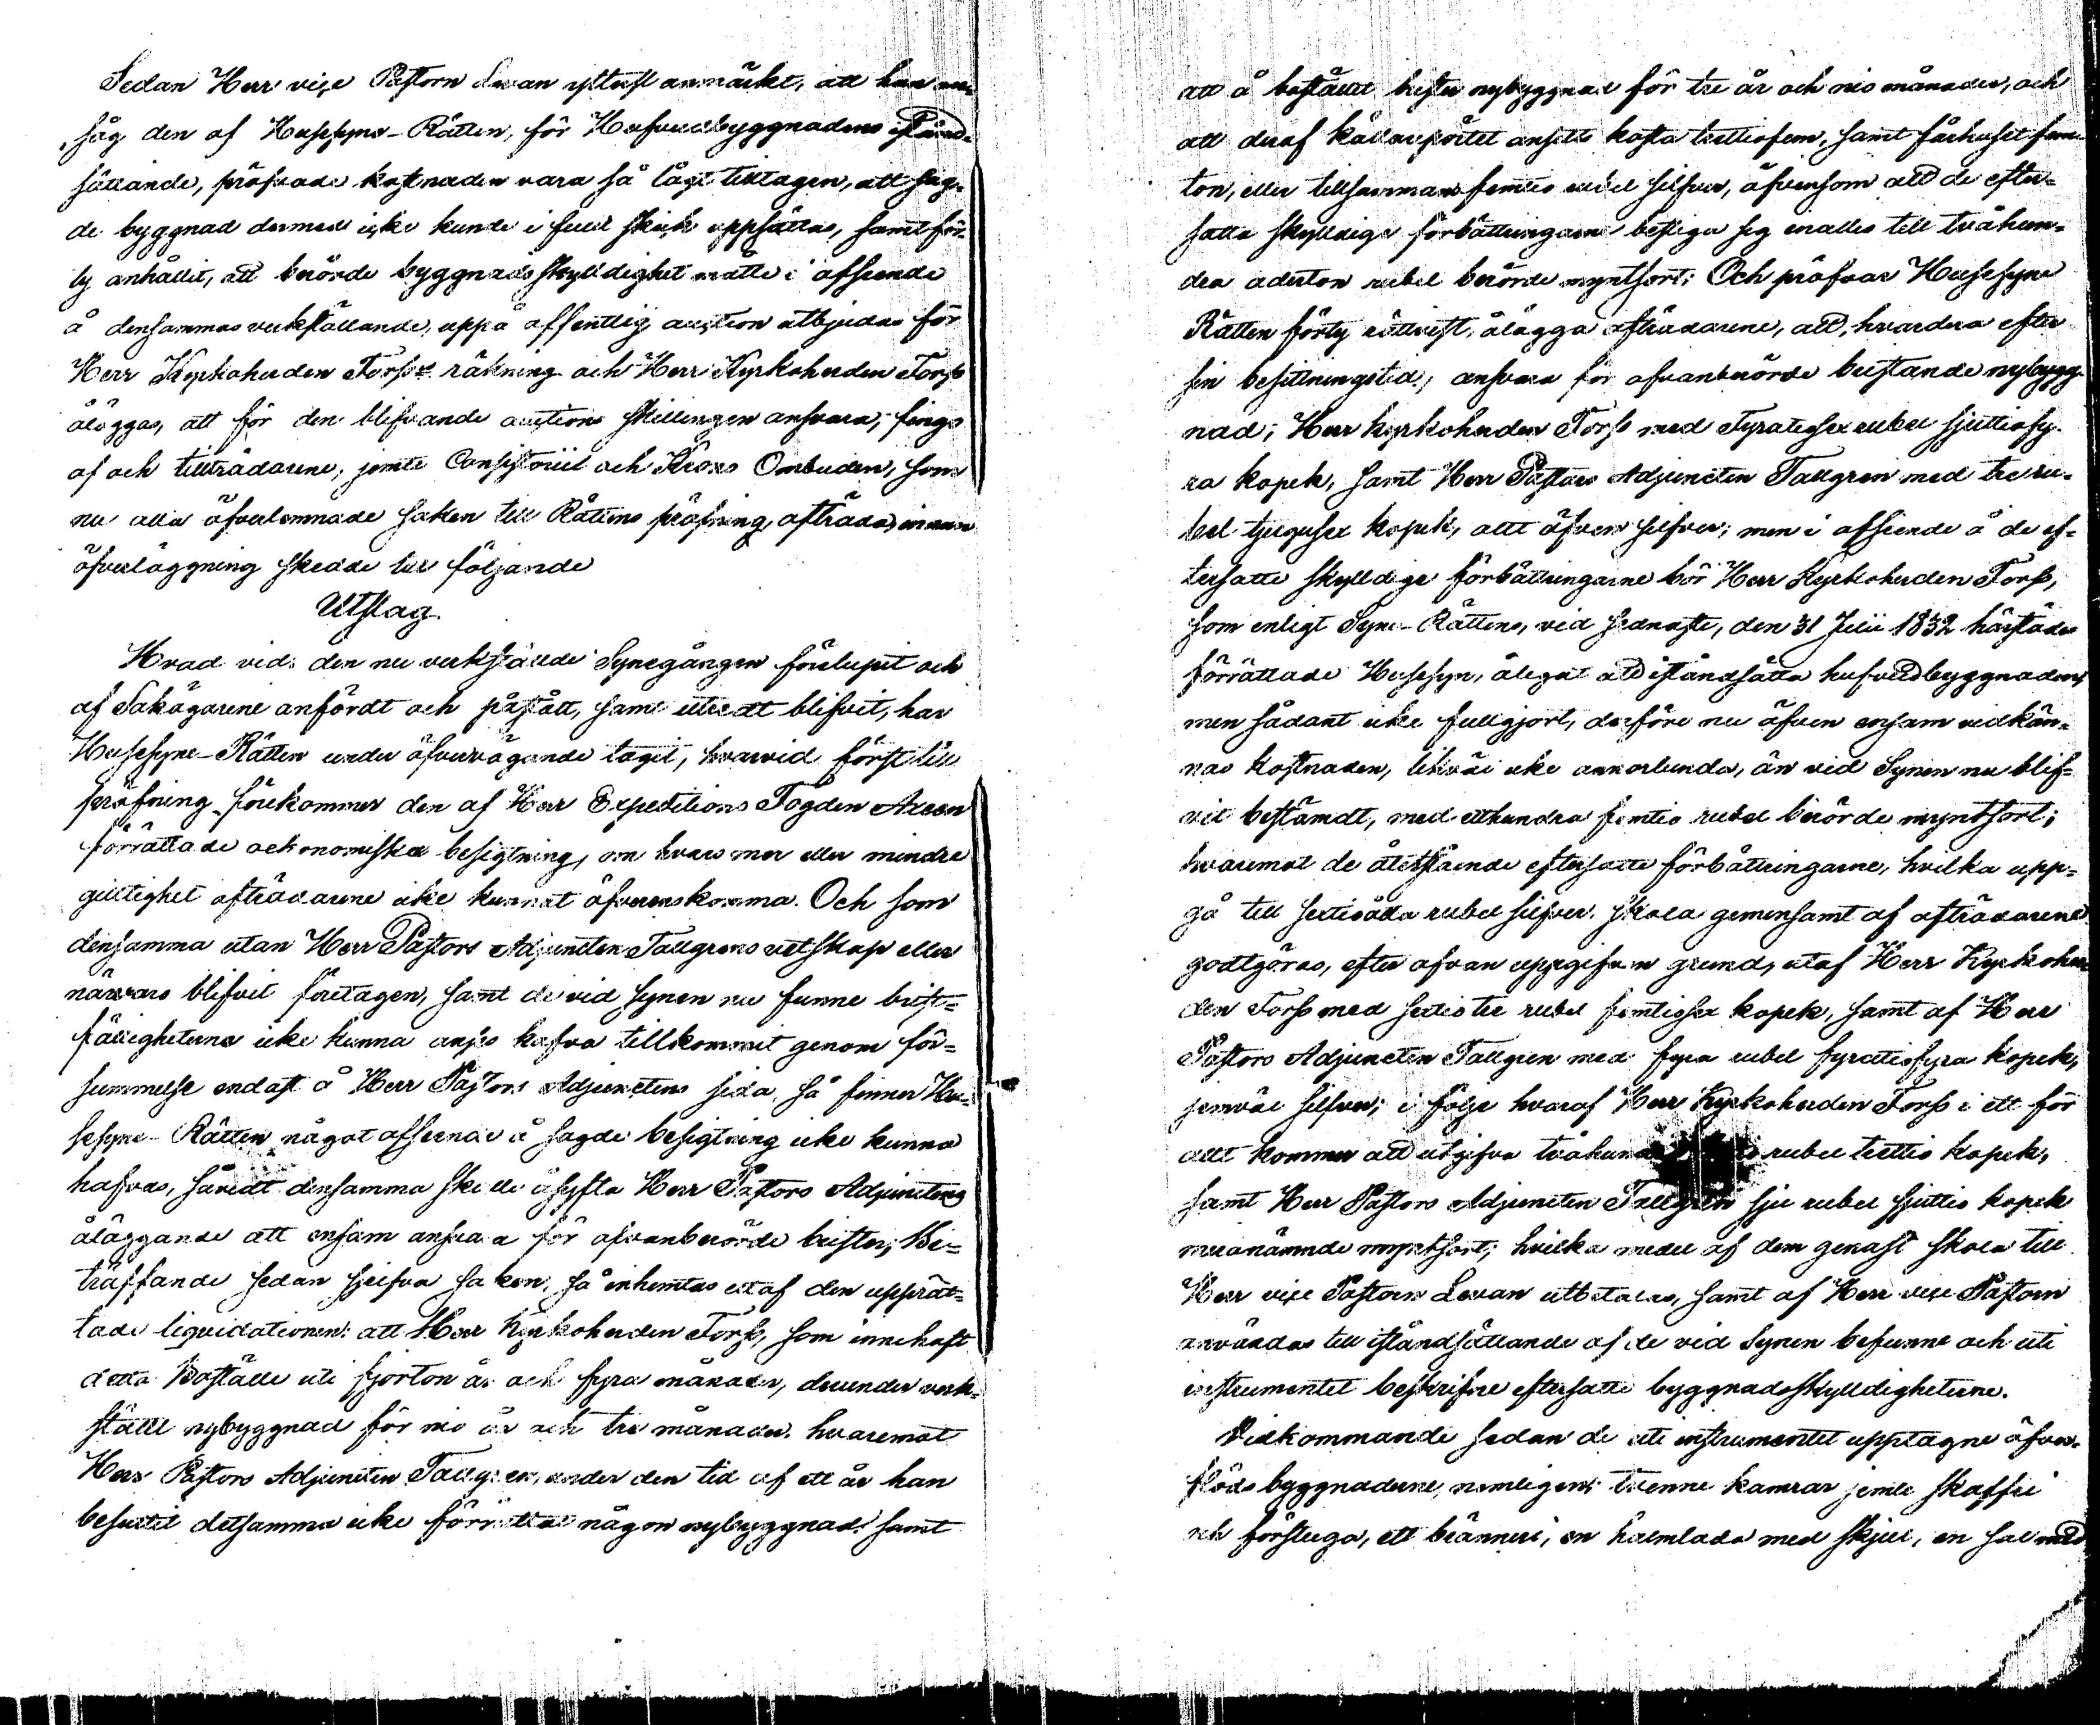 Sedan Herr vice Pastorn Levan ytterst anmärkt, att han an-
såg den af Husesyns-Rätten, för Hufvudbyggnadens istånd-
sättande, pröfvade kostnaden vara så lågt tilltagen, att sag-
de byggnad dermed icke kunde i fullt skick uppsättas, samt för-
ty anhållit, att berörde byggnadsskylldighet måtte i afseende
å densammas verkställande, uppå offentlig auction utbjudas för
Herr Kyrkoherden Forss's räkning och Herr Kyrkoherden Forss
åläggas, att för den blifvande auctions skillingen ansvara, fingo
af och tillträdarene, jemte Consistorii och Krono Ombuden, som
nu alla öfverlemnade saken till Rättens pröfning, afträda, innan
öfverläggning skedde till följande
Utslag.
Hvad vid den nu verkställde Synegången förelupit och
af Sakägarene anfördt och påstått, samt utredt blifvit, har
Husesyne-Rätten under öfvervägande tagit, hvarvid först till
pröfning förekommer den af Herr Expeditions Fogden Aleen
förrättade oekonomiska besigtning, om hvars mer eller mindre
giltighet afträdarene icke kunnat öfverenskomma. Och som
densamma utan Herr Pastors Adjuncten Tallgrens vetskap eller
närvaro blifvit företagen, samt de vid synen nu funne brist-
fälligheterne icke kunna anses hafva tillkommit genom för-
summelse endast å Herr Pastors Adjunctens sida, så finner Hu-
sesyne-Rätten något afseende å sagde besigtning icke kunna
hafvas, såvidt densamma skulle åsyfta Herr Pastors Adjunctens
åläggande att ensam ansvara för ofvanberörde brister; Be-
träffande sedan sjelfva saken, så inhemtas utaf den upprät-
tade liqvidationen: att Herr Kyrkoherden Forss, som innehaft
detta Boställe uti fjorton år och fyra månader, derunder verk-
ställt nybyggnad för nio år och tre månader, hvaremot
Herr Pastors Adjuncten Tallgren, under den tid af ett år han
besuttit detsamma icke förrättat någon nybyggnad samt
att å bostället brister nybyggnad för tre år och nio månader, och
att deraf källarportet ansetts kosta trettiofem, samt fårhuset fem-
ton, eller tillsammans femtio rubel silfver, äfvensom att de efter-
satta skylldige förbättringarne bestiga sig inalles till tvåhun-
dra aderton rubel berörde myntsort; Och pröfvar Husesyne
Rätten förty rättvist, ålägga afträdarene, att, hvardera efter
sin besittningstid, ansvara för ofvanberörde bristande nybygg-
nad; Herr Kyrkoherden Forss med Fyratiosex rubel sjuttiofy-
ra kopek, samt Herr Pastors Adjuncten Tallgren med tre ru-
bel tjugusex kopek, allt äfven silfver; men i afseende å de ef-
tersatte skylldige förbättringarne bör Herr Kyrkoherden Forss,
som enligt Syne-Rättens, vid sednaste, den 31 Julii 1832 härstädes
förrättade Husesyn, ålegat att iståndsätta hufvudbyggnaden,
men sådant icke fullgjort, derföre nu äfven ensam vidkän-
nas kostnaden, likväl icke annorlunda, än vid Synen nu blif-
vit bestämdt, med etthundra femtio rubel berörde myntsort;
hvaremot de återstående eftersatte förbättringarne, hvilka upp-
gå till sextioåtta rubel silfver, skola gemensamt af afträdarene
godtgöras, efter ofvan uppgifven grund, utaf Herr Kyrkoher-
den Forss med sextiotre rubel femtiosex kopek, samt af Herr
Pastors Adjuncten Tallgren med fyra rubel fyratiofyra kopek,
jemväl silfver; i följe hvaraf Herr Kyrkoherden Forss i ett för
allt kommer att utgifva tvåhundra rubel trettio kopek,
samt Herr Pastors Adjuncten Tallgren sju rubel sjuttio kopek
meranämnde myntsort; hvilka medel af dem genast skola till
Herr vice Pastorn Levan utbetalas, samt af Herr vice Pastorn
användas till iståndsättande af de vid Synen befunne och uti
instrumentet beskrifne eftersatte byggnadsskylldigheterne.
Vidkommande sedan de uti instrumentet upptagne öfver-
flöds byggnaderne, nemligen: tvenne kamrar jemte skafferi
och förstuga, ett bränneri, en halmlada med skjul, en sal med